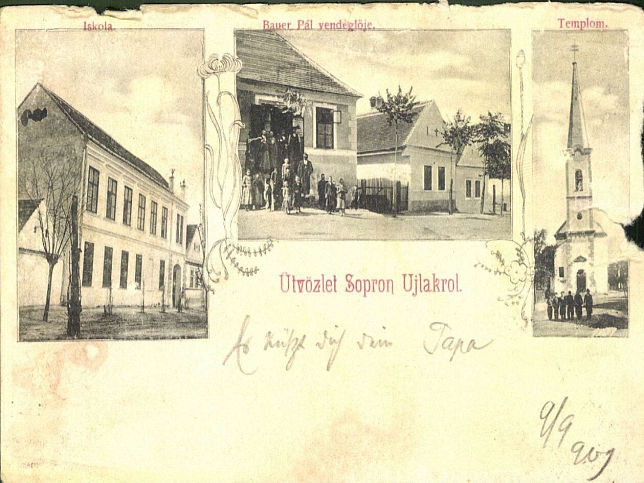 Iskola.
Bauer Pál vendéglője.
Templom.
Üdvözlet Sopron Ujlakrol.
Es küßt dich dein Papa
9/9
909